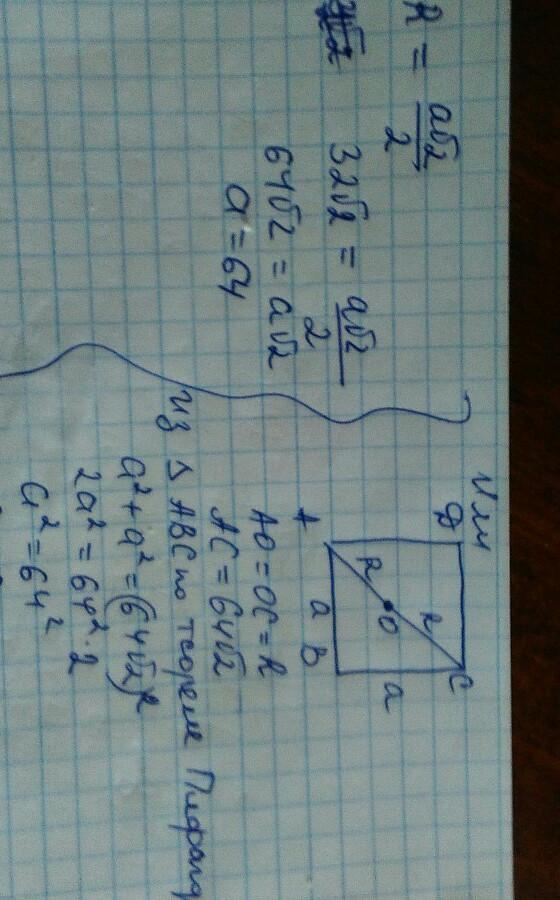 R = a√2 / 2
32√2 = a√2 / 2
64√2 = a√2
a = 64
Или
D C
R
R O
a
A a B
AO = OC = R
AC = 64√2
из Δ ABC по теореме
a² + a² = (64√2)²
2a² = 64² · 2
a² = 64²